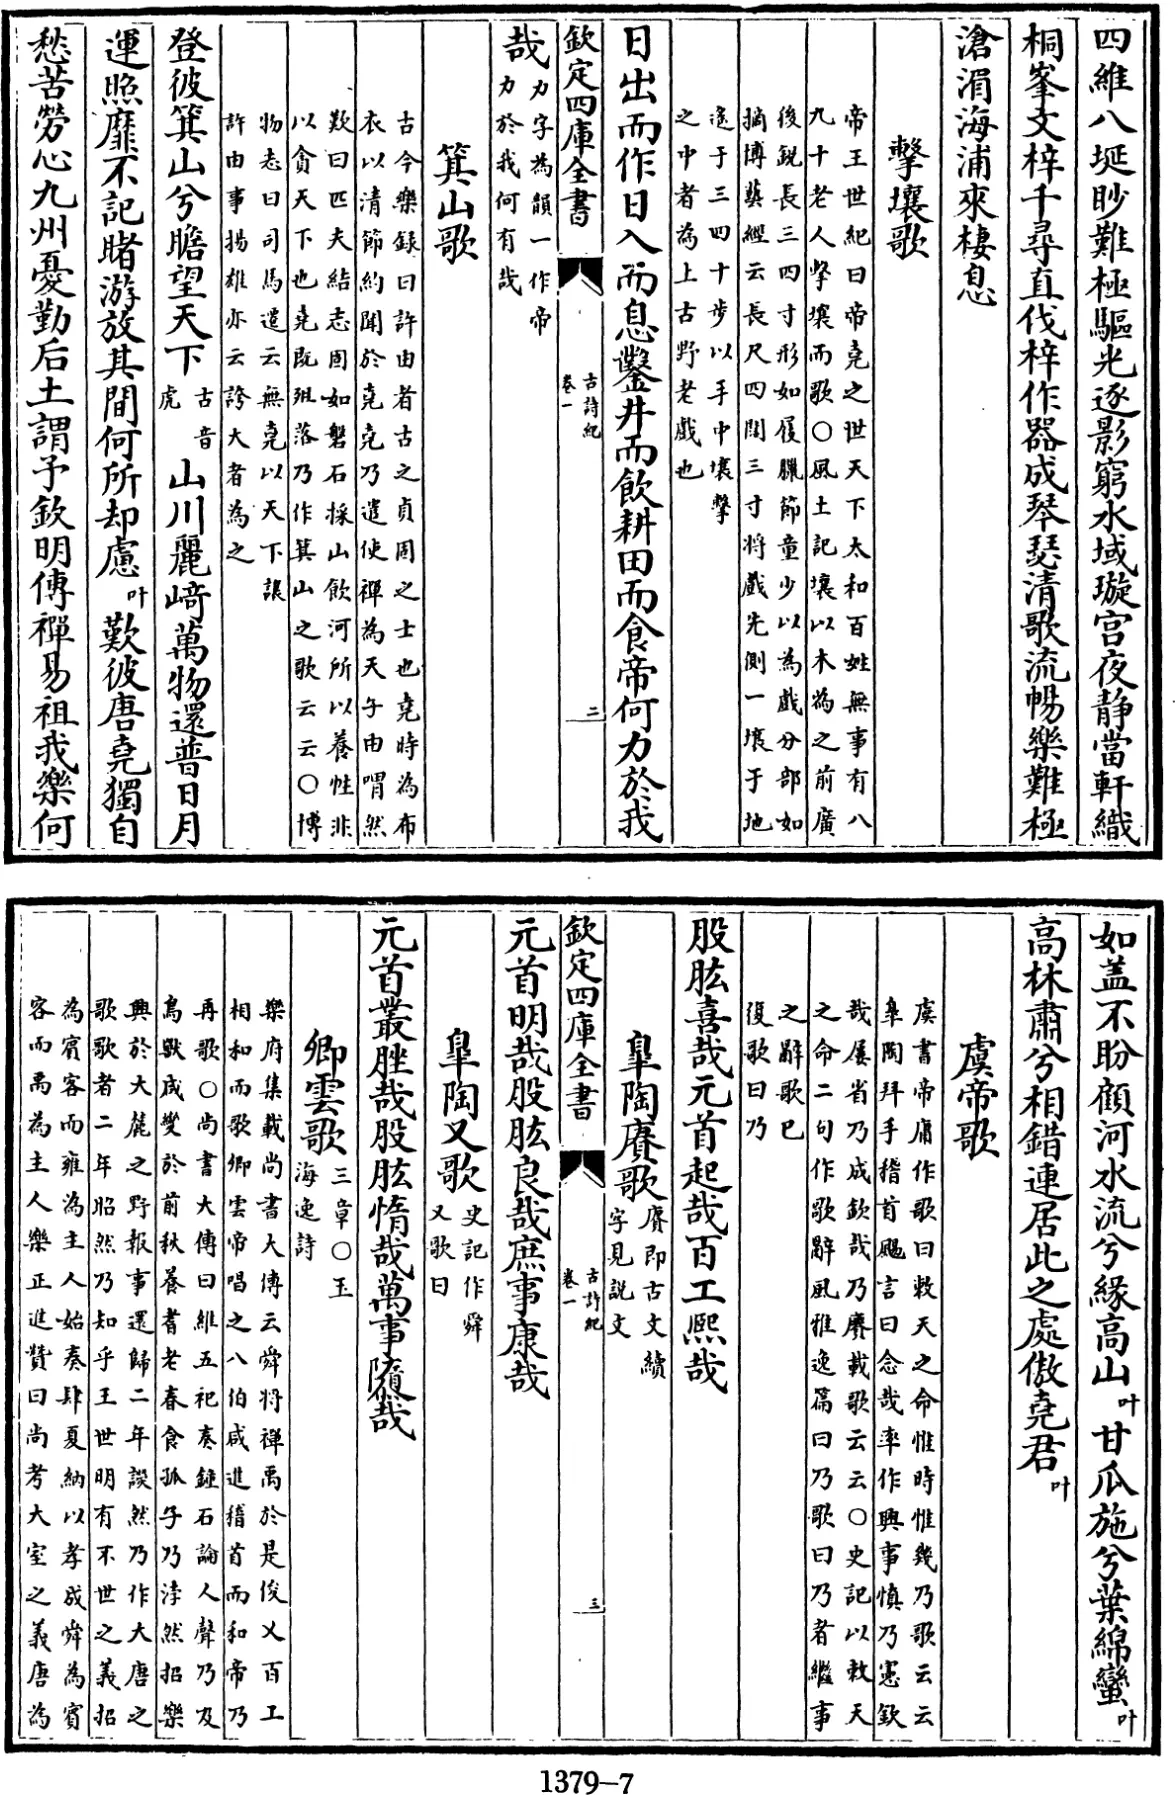 四維八埏眇難極驅光逐影窮水域璇宫夜静當軒織
桐峯文梓千尋直伐梓作器成琴瑟清歌流暢樂難極
滄湄海浦來棲息
擊壤歌
帝王世紀曰帝堯之世天下太和百姓無事有八
九十老人擊壤而歌○風土記壤以木為之前廣
後銳長三四寸形如履臘節童少以為戲分部如
摘博藝經云長尺四闊三寸将戲先側一壤于地
遥于三四十步以手中壤擊
之中者為上古野老戲也
日出而作日入而息鑿井而飲耕田而食帝何力於我
欽定四庫全書
古詩紀
卷一
二
哉
力字為韻一作帝
力於我何有哉
箕山歌
古今樂録曰許由者古之貞固之士也堯時為布
衣以清節約聞於堯堯乃遣使禪為天子由喟然
歎曰匹夫結志固如磐石採山飲河所以養性非
以貪天下也堯既殂落乃作箕山之歌云云○博
物志曰司馬遷云無堯以天下讓
許由事揚雄亦云誇大者為之
登彼箕山兮瞻望天下
古音
虎
山川麗﨑萬物還普日月
運照靡不記睹游放其間何所却慮叶歎彼唐堯獨自
愁苦勞心九州憂勤后土謂予欽明傳禪易祖我樂何
如盖不盼顧河水流兮緣高山叶甘瓜施兮葉綿蠻叶
高林肅兮相錯連居此之處傲堯君叶
虞帝歌
虞書帝庸作歌曰敕天之命惟時惟幾乃歌云云
臯陶拜手稽首颺言曰念哉率作興事慎乃憲欽
哉屢省乃成欽哉乃賡載歌云云○史記以敕天
之命二句作歌辭風雅逸篇曰乃歌曰乃者繼事
之辭歌已
復歌曰乃
股肱喜哉元首起哉百工熙哉
臯陶賡歌
賡即古文續
字見説文
欽定四庫全書
古詩紀
卷一
三
元首明哉股肱良哉庶事康哉
臯陶又歌
史記作舜
又歌曰
元首叢脞哉股肱惰哉萬事隳哉
卿雲歌
三章○玉
海逸詩
樂府集載尚書大傳云舜将禪禹於是俊乂百工
相和而歌卿雲帝唱之八伯咸進稽首而和帝乃
再歌○尚書大傳曰維五祀奏鐘石論人聲乃及
鳥獸咸變於前秋養耆老春食孤子乃浡然招樂
興於大麓之野報事還歸二年談然乃作大唐之
歌歌者二年昭然乃知乎王世明有不世之義招
為賓客而雍為主人始奏肆夏納以孝成舜為賓
客而禹為主人樂正進贊曰尚考大室之義唐為
1379-7